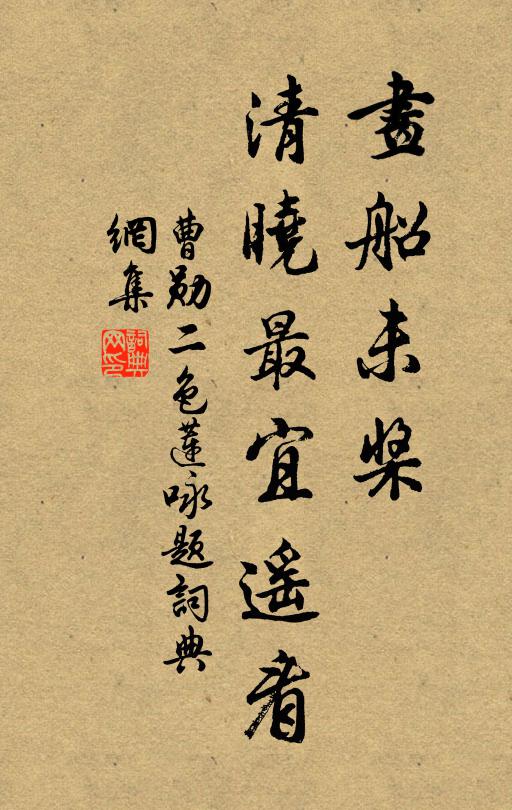 畫船未槳
清曉最宜遥看
曹勛二色蓮咏题詞典
網集
詞典网印